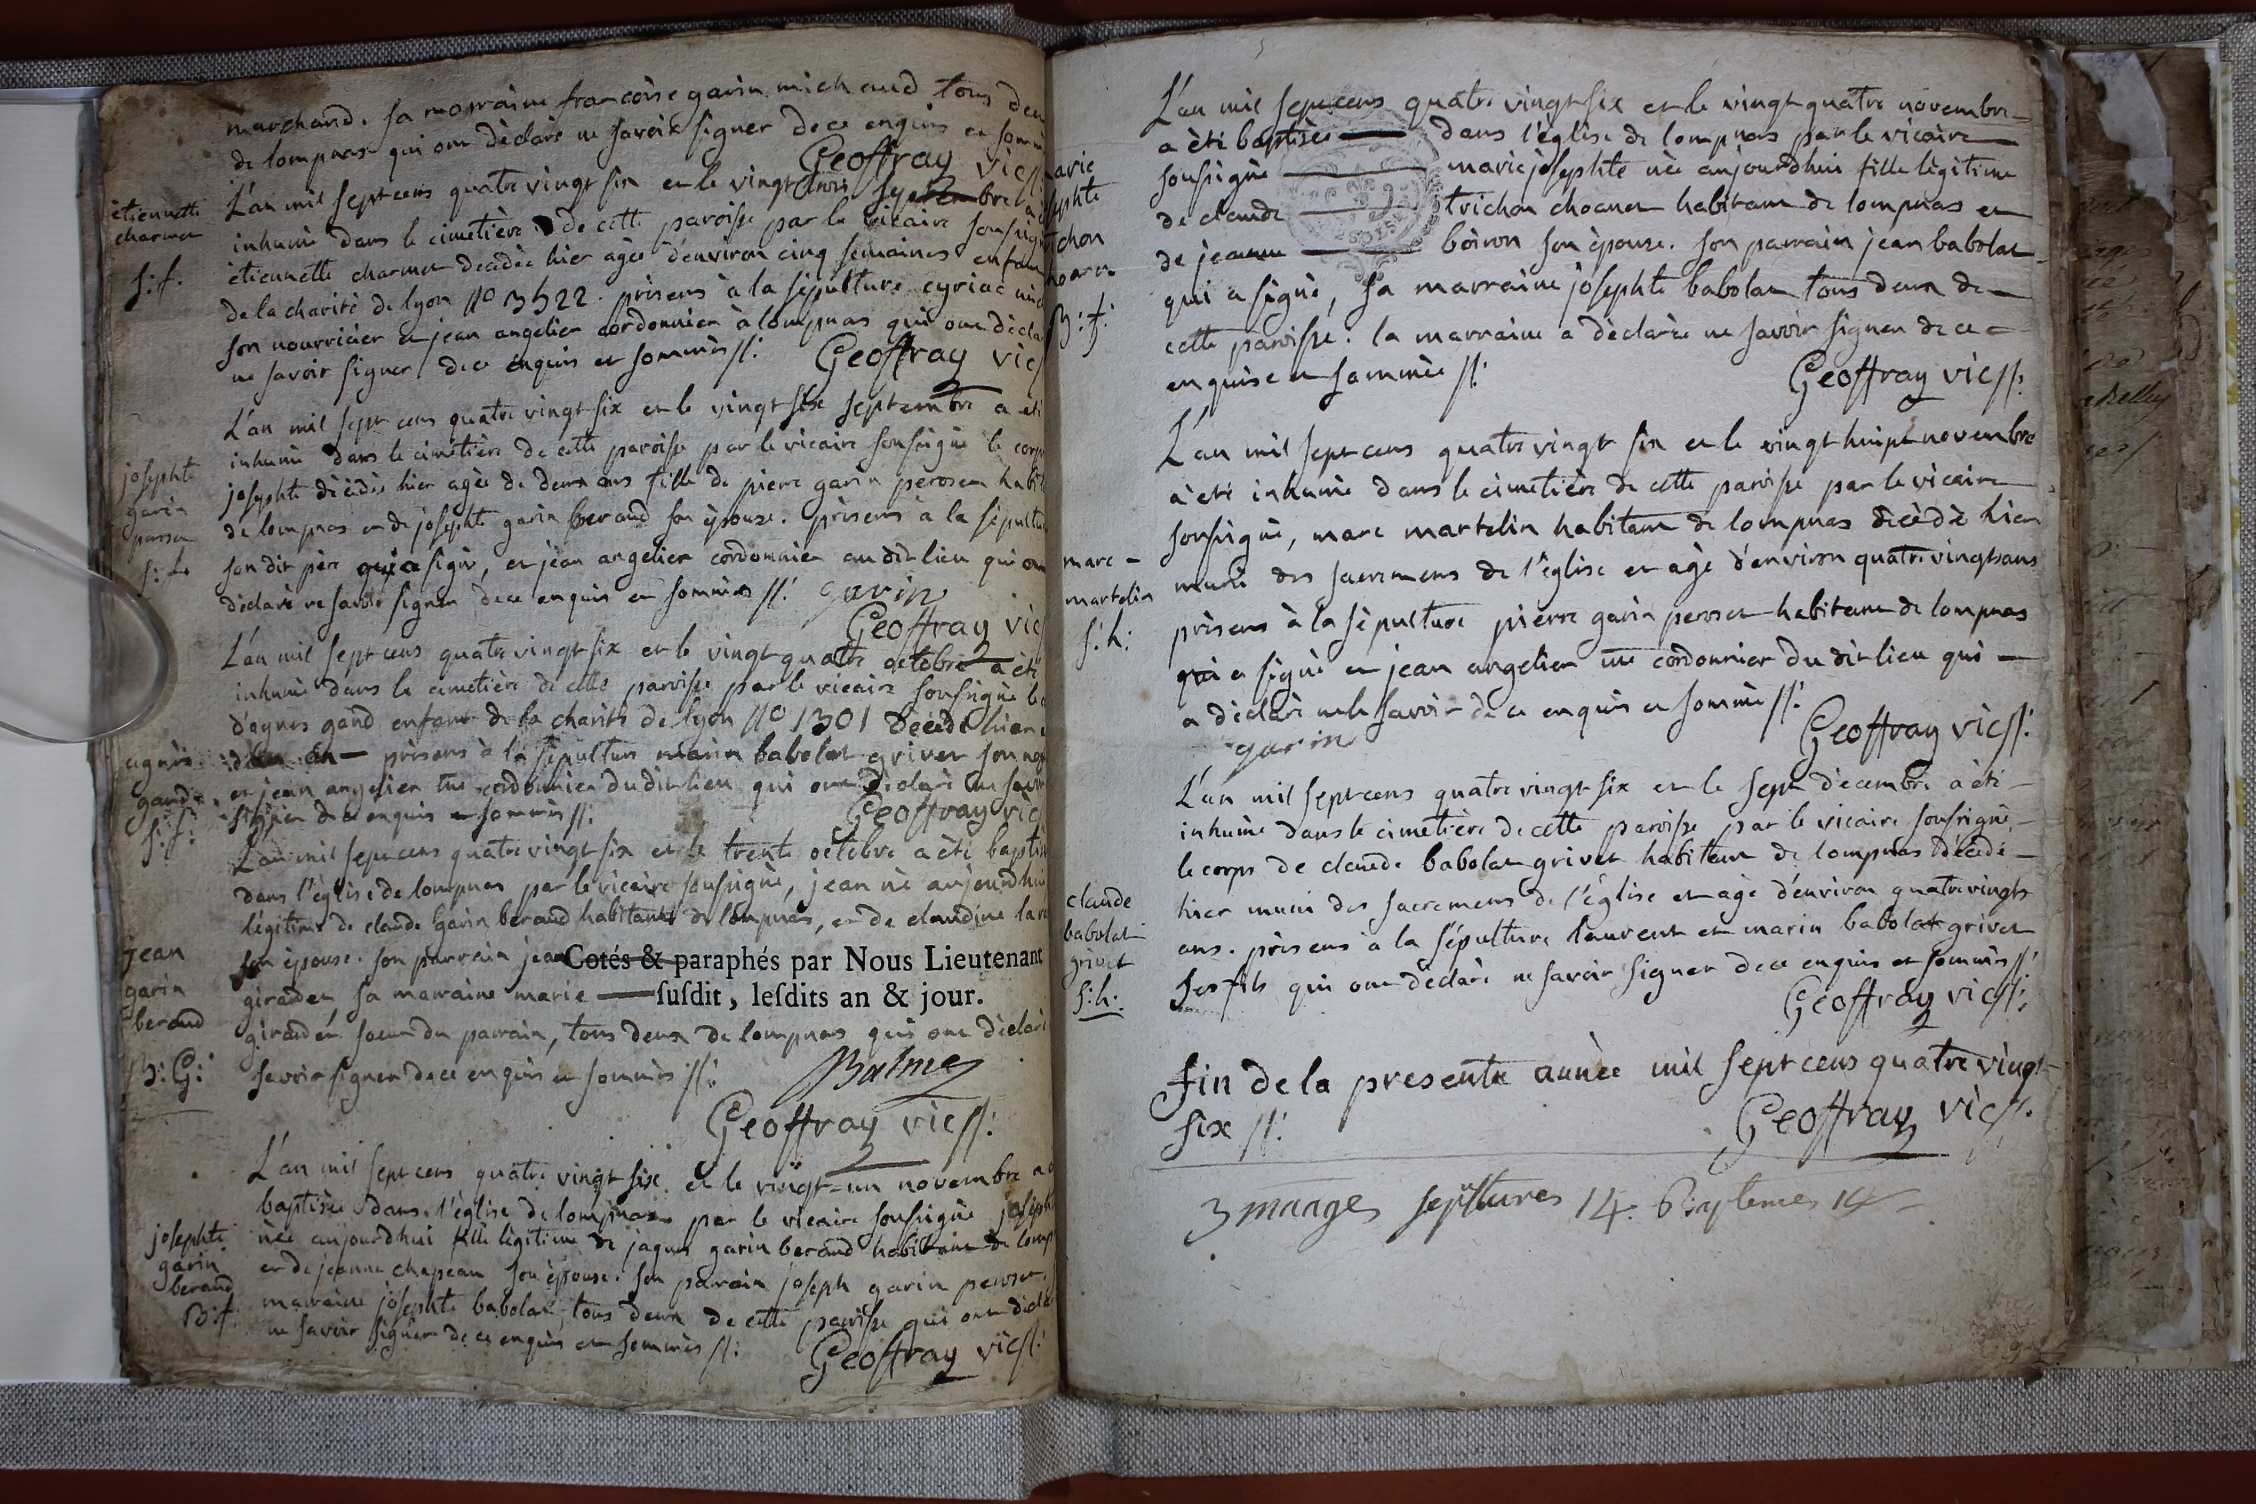 marchand. sa marraine francoise garin michaud tous deux
de lompnas qui ont dèclarè ne savoir signer de ce enquis et sommè
Geoffray vic//:
L'an mil sept cens quatre vingt six et le vingt trois septembre a
inhumè dans le cimetière de cette paroisse par le vicaire soussignè
ètiennette charmet dècèdèe hier agèe d'environ cinq semaines enfant
de la charitè de lyon no 3522. prèsens à la sèpulture cyriac
son nourricier et jean angelier cordonnier à lompnas qui ont dècla
ne savoir signer de ce enquis et sommès //:
Geoffray vic
ètiennette
charmet
s: f.
L'an mil sept cens quatre vingt six et le vingt six septembre a eti
inhumè dans le cimetière de cette paroisse par le vicaire soussignè le corp
josephte dècèdèe hier agèe de deux ans fille de pierre garin perosset habit
de lompnas et de josephte garin beraud son èpouse. prèsens à la sèpultu
son dit père qui a signè, et jean angelier cordonnier au dit lieu qui on
dèclarè ne savoir signer de ce enquis et sommès //: garin
Geoffray vic
josephte
garin
s: f.
L'an mil sept cens quatre vingt six et le vingt quatre octobre a ètè
inhumè dans le cimetière de cette paroisse par le vicaire soussignè le
d'agnes gand enfant de la charitè de lyon no 1301 dècèdè hier
d'un an — prèsens à la sèpulture marin babolat grivet son
et jean angelier cordonnier du dit lieu qui ont dèclarè ne savoir
signer de ce enquis et sommès //:
Geoffray vic
agnès
gand
s: f:
L'an mil sept cens quatre vingt six et le trente octobre a èti baptis
dans l'èglise de lompnas par le vicaire soussignè, jean nè aujourdhui
lègitime de claude garin beraud habitant de lompnas, et de claudine
son èpouse. son parrain jean Cotés & paraphés par Nous Lieutenant
girardet sa marraine marie — suſdit, leſdits an & jour.
girardet soeur du parrain, tous deux de lompnas qui ont dèclarè
savoir signer de ce enquis et sommès //:
Balme
Geoffray vic//:
jean
garin
beraud
B: G:
L'an mil sept cens quatre vingt six et le vingt-un novembre a
baptisèe dans l'èglise de lompnas par le vicaire soussignè josephte
nèe aujourdhui fille lègitime de jaques garin beraud habitant de lomp
et de jeanne chapeau son èpouse. son parrain joseph garin perosset.
marraine josephte babolat, tous deux de cette paroisse qui ont dècla
ne savoir signer de ce enquis et sommès //:
Geoffray vic//:
josephte
garin
beraud
B: f.
L'an mil sept cens quatre vingt six et le vingt quatre novembre
a èti baptisèe — dans l'èglise de lompnas par le vicaire
soussignè — marie josephte nèe aujourdhui fille lègitime
de claude — trichon chocner habitant de lompnas et
de jeanne — boiron son èpouse. son parrain jean babolat
qui a signè, sa marraine josephte babolat tous deux de
cette paroisse. la marraine a dèclarèe ne savoir signer de ce
enquise et sommèe //:
Geoffray vic//:
arie
sephte
chon
B: f:
L'an mil sept cens quatre vingt six et le vingt huipt novembre
a èti inhumè dans le cimetière de cette paroisse par le vicaire
soussignè, marc martelin habitant de lompnas dècèdè hier
muni des sacremens de l'èglise et agè d'environ quatre vingt ans
prèsens à la sèpulture pierre garin perosset habitant de lompnas
qui a signè et jean angelier cordonnier du dit lieu qui
a dèclarè ne le savoir de ce enquis et sommè //:
garin
Geoffray vic//:
marc
martelin
s: h:
L'an mil sept cens quatre vingt six et le sept dècembre a èti
inhumè dans le cimetière de cette paroisse par le vicaire soussignè,
le corps de claude babolat grivet habitant de lompnas dècèdè
hier muni des sacremens de l'èglise et agè d'environ quatre vingts
ans. prèsens à la sèpulture laurent et marin babolat grivet
ses fils qui ont dèclarè ne savoir signer de ce enquis et sommès //:
Geoffray vic//:
claude
babolat
grivet
s: h:
fin de la presente annèe mil sept cens quatre vingt
six //:
Geoffray vic//.
3 mariages sepultures 14. Baptemes 14